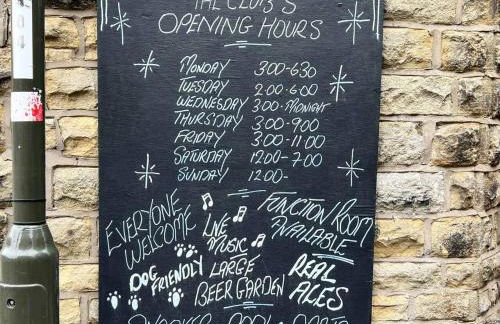 THE CLUB'S
OPENING HOURS
MONDAY 3:00-6:30
TUESDAY 2:00-6:00
WEDNESDAY 3:00-MIDNIGHT
THURSDAY 3:00-9:00
FRIDAY 3:00-11:00
SATURDAY 12:00-7:00
SUNDAY 12:00-
EVERYONE
WELCOME
LIVE
MUSIC
FUNCTION ROOM
AVAILABLE
DOG
FRIENDLY
LARGE
BEER GARDEN
REAL
ALES
SNOOKER POOL DARTS